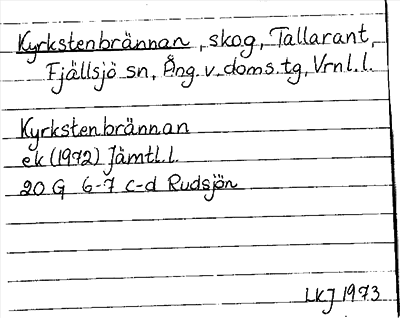 Kyrkstenbrännan, skog, Tallarant,
Fjällsjö sn, Ång. v. doms. tg, Vrnl. l.
Kyrkstenbrännan
ek (1972) Jämtl. l.
20 G 6-7 c-d Rudsjön
LKJ 1973